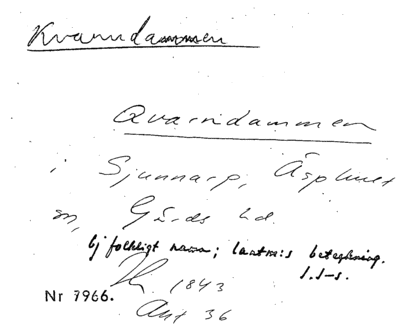 Kvarndammen
Qvarndammen
i Sjunnarp, Äsphult
sn, Gärds hd.
ej folkligt namn; lantm:s beteckning.
S.I-s.
1843
Nr 7966.
Akt 36